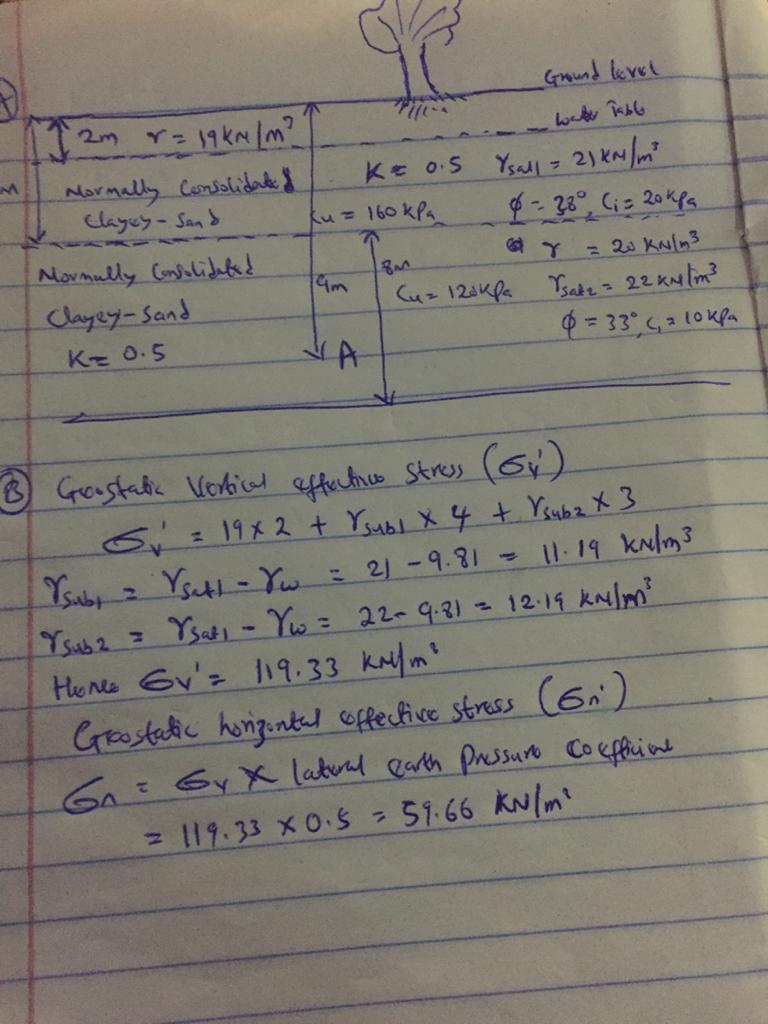 A
Ground level
2m γ = 19KN/m³
Water Table
K = 0.5 γsat1 = 21KN/m³
m
Normally Consolidated
Clayey-Sand
Cu = 160KPa
φ = 38°, C1 = 20KPa
γ = 20 KN/m³
Normally Consolidated
9m
8m
Cu = 120KPa
γsat2 = 22KN/m³
Clayey-Sand
φ = 33°, C1 = 10KPa
K = 0.5
A
B Geostatic Vertical effective stress (σv')
σv' = 19 x 2 + γsub1 x 4 + γsub2 x 3
γsub1 = γsat1 - γw = 21 - 9.81 = 11.19 KN/m3
γsub2 = γsat1 - γw = 22 - 9.81 = 12.19 KN/m³
Hence σv' = 119.33 KN/m²
Geostatic horizontal effective stress (σn')
σn = σv x lateral earth pressure coefficient
= 119.33 x 0.5 = 59.66 KN/m²